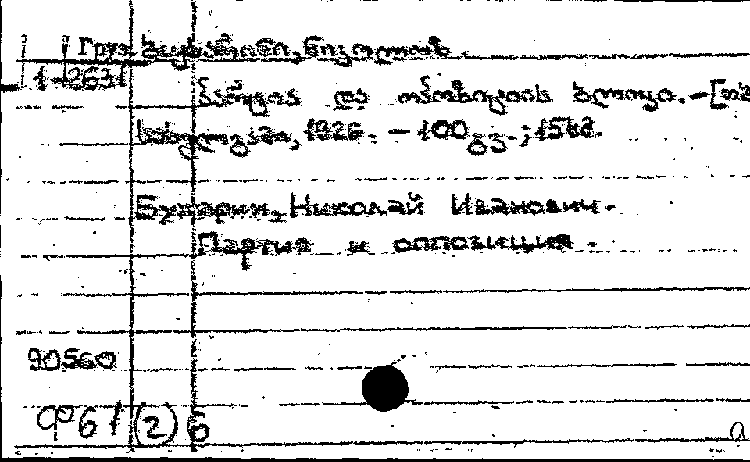 Груз ბუხარინი, ნიკოლოზ.
1-2631
პარტია და ოპოზიციის ბლოკი.–[თბ
სახელგამი, 1926. – 100გვ.; 15სმ.
Бухарин, Николай Иванович.
Партия и оппозиция.
90560
Ф61(2)б